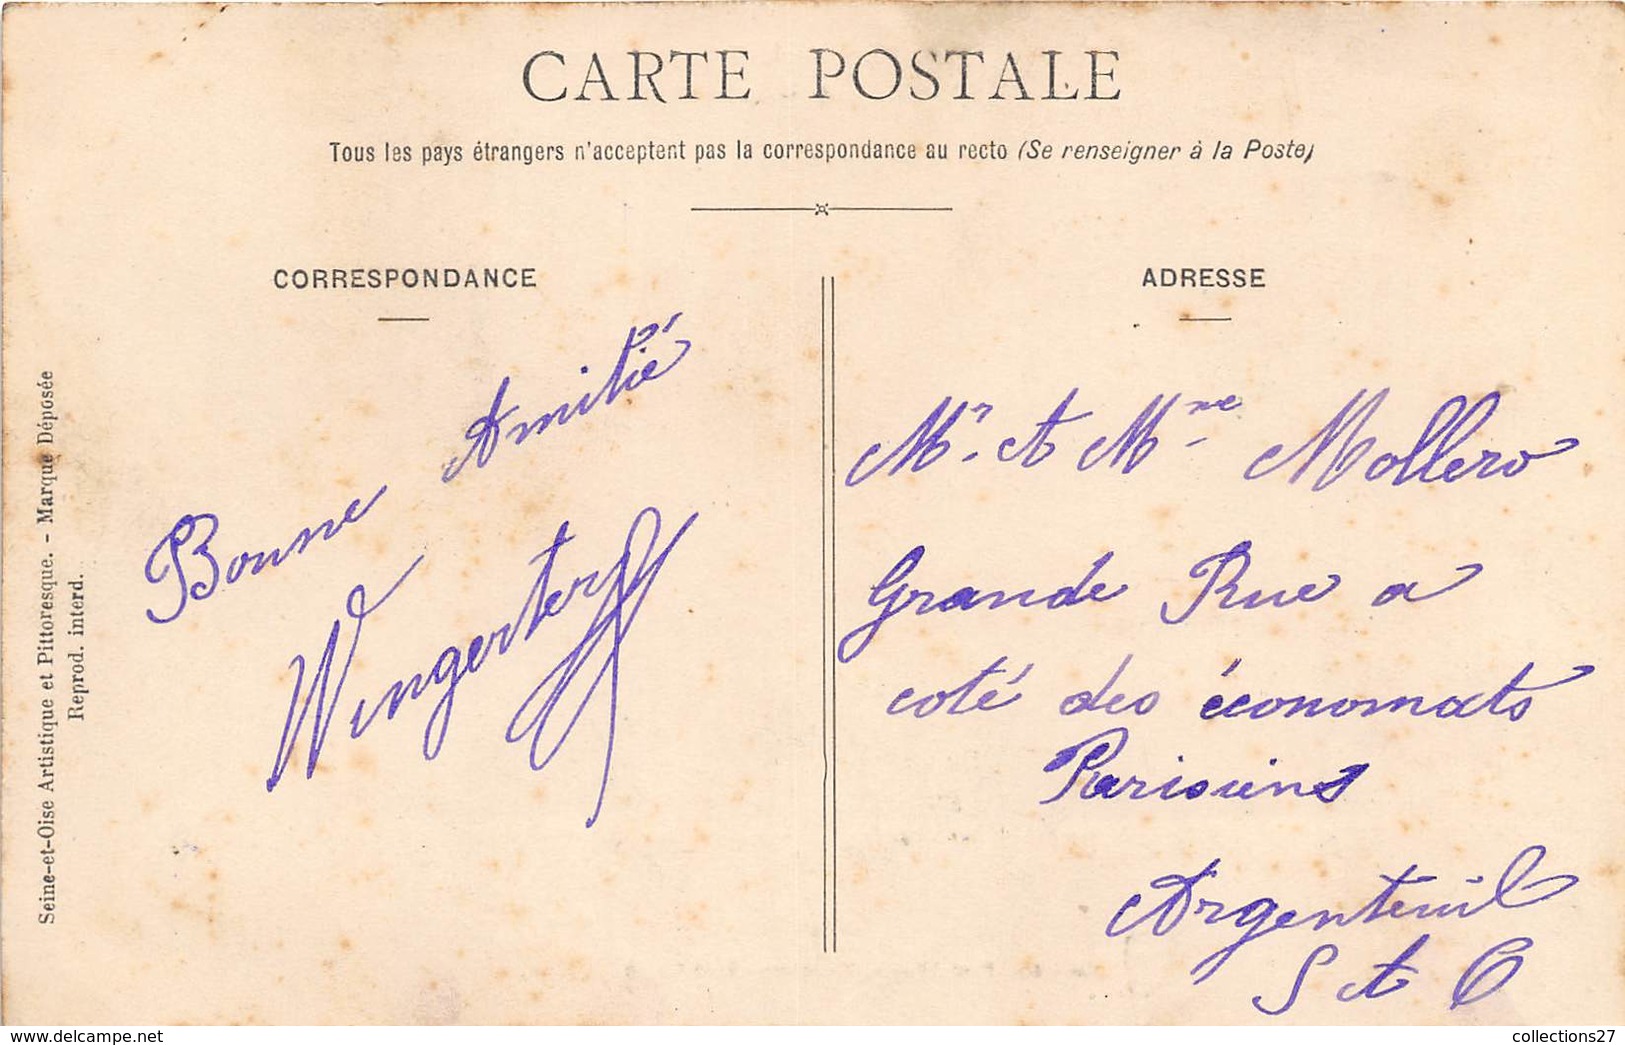 CARTE POSTALE
Tous les pays étrangers n'acceptent pas la correspondance au recto (Se renseigner à la Poste)
CORRESPONDANCE
Bonne Amitié
Wingerter
ADRESSE
Mr. et Mme Mollero
Grande Rue a
coté des économats
Parisiens
Argenteuil
S et O
Seine-et-Oise Artistique et Pittoresque. - Marque Déposée
Reprod. interd.
collections27